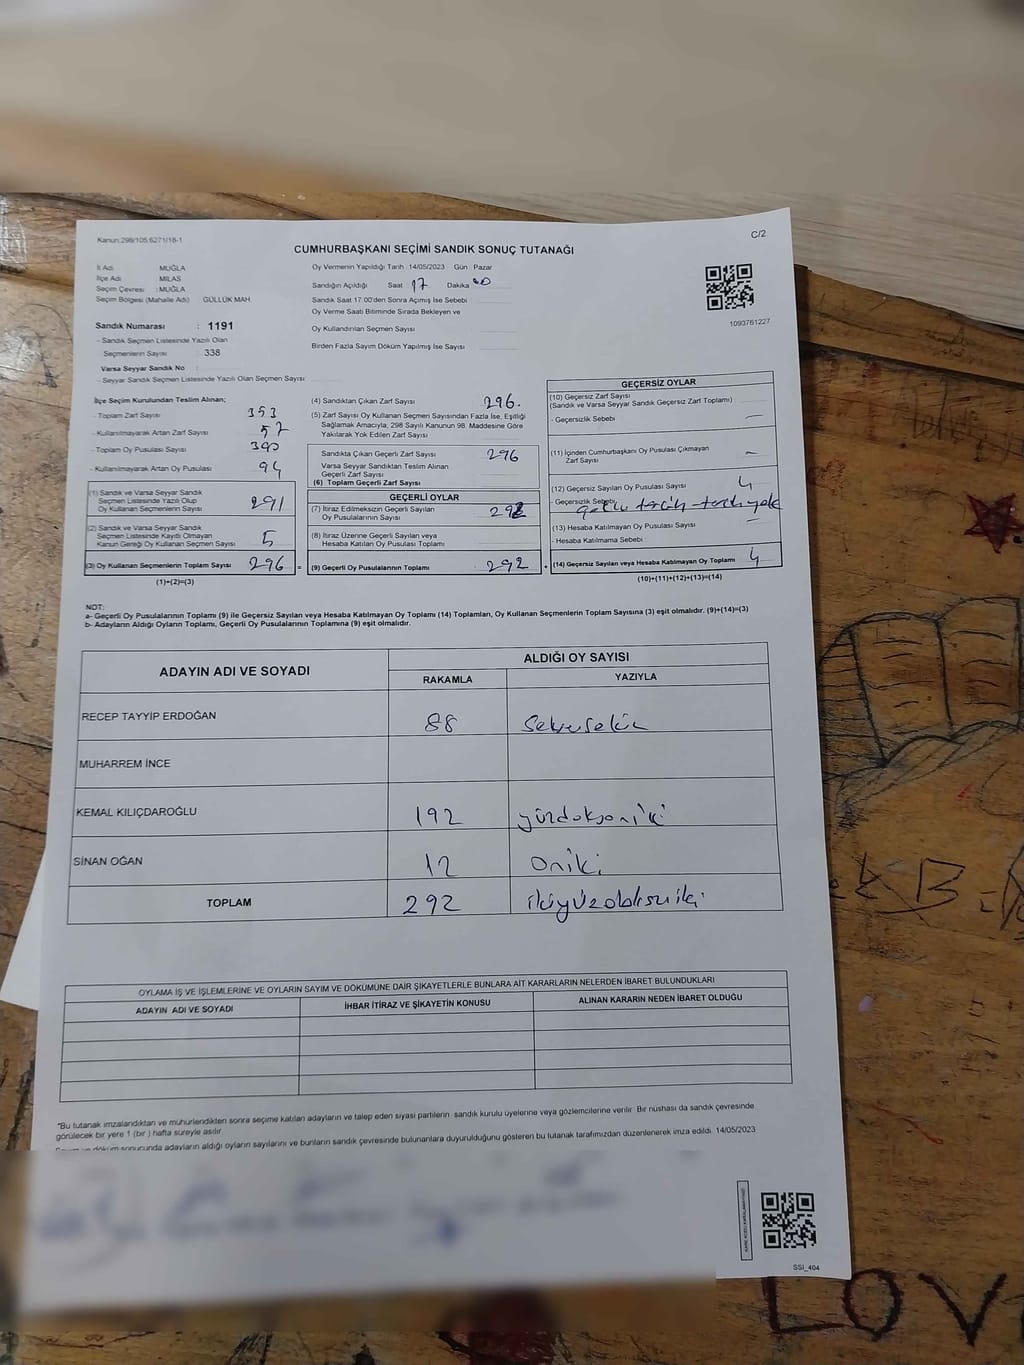 Kanun:298/105,6271/18-1
C/2
CUMHURBAŞKANI SEÇİMİ SANDIK SONUÇ TUTANAĞI
İl Adı MUĞLA
İlçe Adı MİLAS
Seçim Çevresi : MUĞLA
Seçim Bölgesi (Mahalle Adı) GÜLLÜK MAH
Sandık Numarası : 1191
- Sandık Seçmen Listesinde Yazılı Olan
Seçmenlerin Sayısı : 338
Varsa Seyyar Sandık No :
- Seyyar Sandık Seçmen Listesinde Yazılı Olan Seçmen Sayısı
Oy Vermenin Yapıldığı Tarih :14/05/2023 Gün : Pazar
Sandığın Açıldığı Saat 17 Dakika 00
Sandık Saat 17.00'den Sonra Açımış İse Sebebi
Oy Verme Saati Bitiminde Sırada Bekleyen ve
Oy Kullandırılan Seçmen Sayısı
Birden Fazla Sayım Döküm Yapılmış İse Sayısı
1093761227
İlçe Seçim Kurulundan Teslim Alınan;
- Toplam Zarf Sayısı 353
- Kullanılmayarak Artan Zarf Sayısı 57
- Toplam Oy Pusulası Sayısı 390
- Kullanılmayarak Artan Oy Pusulası 94
(1) Sandık ve Varsa Seyyar Sandık
Seçmen Listesinde Yazılı Olup
Oy Kullanan Seçmenlerin Sayısı 291
(2) Sandık ve Varsa Seyyar Sandık
Seçmen Listesinde Kayıtlı Olmayan
Kanun Gereği Oy Kullanan Seçmen Sayısı 5
(3) Oy Kullanan Seçmenlerin Toplam Sayısı 296 =
(1)+(2)=(3)
(4) Sandıktan Çıkan Zarf Sayısı 296.
(5) Zarf Sayısı Oy Kullanan Seçmen Sayısından Fazla İse, Eşitliği
Sağlamak Amacıyla, 298 Sayılı Kanunun 98. Maddesine Göre
Yakılarak Yok Edilen Zarf Sayısı
Sandıkta Çıkan Geçerli Zarf Sayısı 296
Varsa Seyyar Sandıktan Teslim Alınan
Geçerli Zarf Sayısı
(6) Toplam Geçerli Zarf Sayısı
GEÇERLİ OYLAR
(7) İtiraz Edilmeksizin Geçerli Sayılan
Oy Pusulalarının Sayısı 292
(8) İtiraz Üzerine Geçerli Sayılan veya
Hesaba Katılan Oy Pusulası Toplamı
(9) Geçerli Oy Pusulalarının Toplamı 292 +
GEÇERSİZ OYLAR
(10) Geçersiz Zarf Sayısı
(Sandık ve Varsa Seyyar Sandık Geçersiz Zarf Toplamı)
- Geçersizlik Sebebi —
(11) İçinden Cumhurbaşkanı Oy Pusulası Çıkmayan
Zarf Sayısı —
(12) Geçersiz Sayılan Oy Pusulası Sayısı 4
- Geçersizlik Sebebi
(13) Hesaba Katılmayan Oy Pusulası Sayısı —
- Hesaba Katılmama Sebebi
(14) Geçersiz Sayılan veya Hesaba Katılmayan Oy Toplamı 4
(10)+(11)+(12)+(13)=(14)
NOT:
a- Geçerli Oy Pusulalarının Toplamı (9) ile Geçersiz Sayılan veya Hesaba Katılmayan Oy Toplamı (14) Toplamları, Oy Kullanan Seçmenlerin Toplam Sayısına (3) eşit olmalıdır. (9)+(14)=(3)
b- Adayların Aldığı Oyların Toplamı, Geçerli Oy Pusulalarının Toplamına (9) eşit olmalıdır.
ADAYIN ADI VE SOYADI
ALDIĞI OY SAYISI
RAKAMLA YAZIYLA
RECEP TAYYİP ERDOĞAN 88
MUHARREM İNCE
KEMAL KILIÇDAROĞLU 192 yüzdoksaniki
SİNAN OĞAN 12 Oniki
TOPLAM 292
OYLAMA İŞ VE İŞLEMLERİNE VE OYLARIN SAYIM VE DÖKÜMÜNE DAİR ŞİKAYETLERLE BUNLARA AİT KARARLARIN NELERDEN İBARET BULUNDUKLARI
ADAYIN ADI VE SOYADI İHBAR İTİRAZ VE ŞİKAYETİN KONUSU ALINAN KARARIN NEDEN İBARET OLDUĞU
*Bu tutanak imzalandıktan ve mühürlendikten sonra seçime katılan adayların ve talep eden siyasi partilerin sandık kurulu üyelerine veya gözlemcilerine verilir. Bir nüshası da sandık çevresinde
görülecek bir yere 1 (bir ) hafta süreyle asılır.
döküm sonucunda adayların aldığı oyların sayılarını ve bunların sandık çevresinde bulunanlara duyurulduğunu gösteren bu tutanak tarafımızdan düzenlenerek imza edildi. 14/05/2023
SSİ_404
LOV